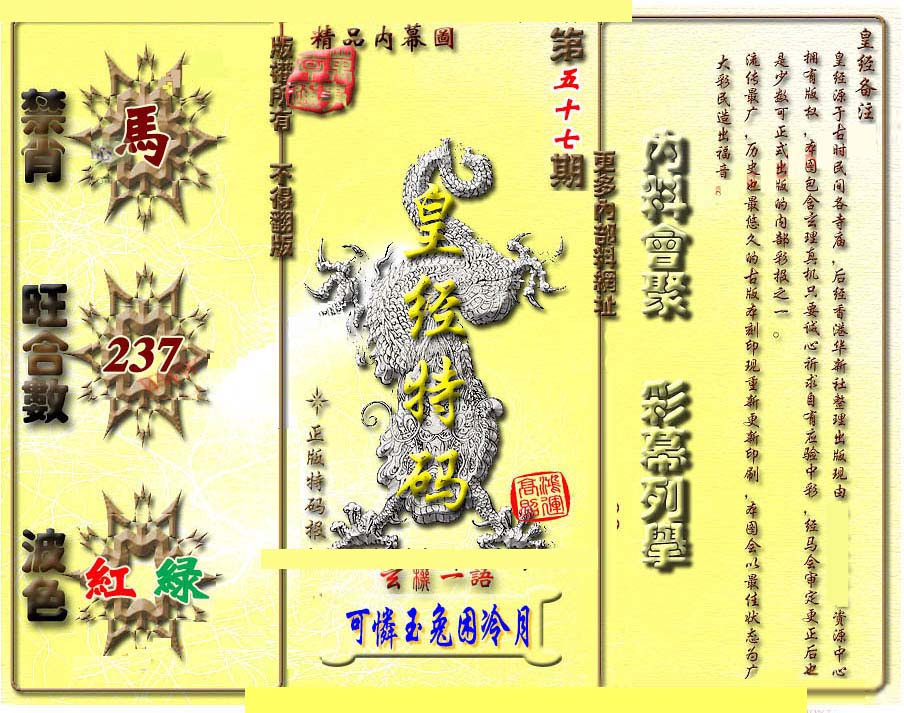 皇经备注
皇经源于古时民间各寺庙,后经香港华新社整理出版现由
资源中心
拥有版权,本图包含玄理真机只要诚心祈求自有应验中彩,经马会审定更正后也
是少数可正式出版的内部彩报之一。
流传最广,历史也最悠久的古版本刻印现重新更新印刷,本图会以最佳状态为广
大彩民造出福音
內料會聚
彩幕列學
更多內部料網址
第五十七期
精品内幕圖
皇经特码
鴻運
高照
正版特码报
版權所有 不得翻版
玄機一語
可憐玉兔困冷月
禁肖
馬
旺合數
237
波色
紅 綠